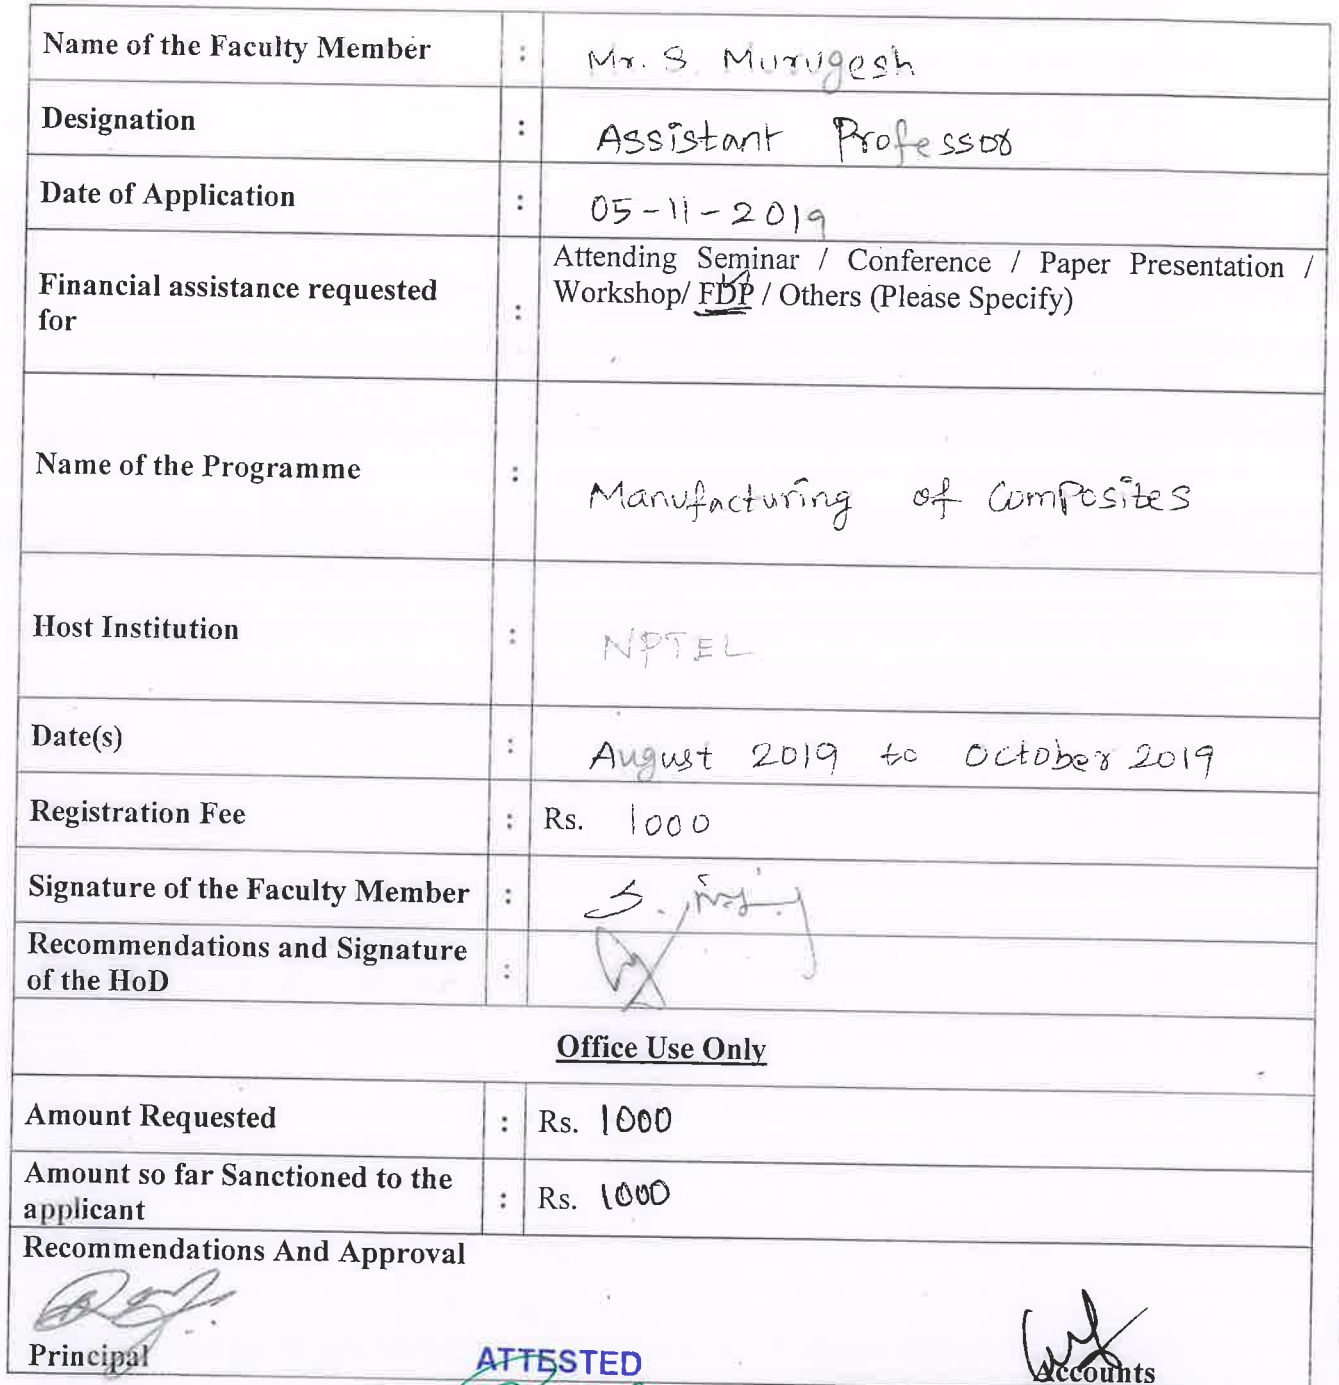 Name of the Faculty Member : Mr. S. Murugesh
Designation : Assistant Professor
Date of Application : 05-11-2019
Financial assistance requested for : Attending Seminar / Conference / Paper Presentation /
Workshop/ FDP / Others (Please Specify)
Name of the Programme : Manufacturing of Composites
Host Institution : NPTEL
Date(s) : August 2019 to October 2019
Registration Fee : Rs. 1000
Signature of the Faculty Member :
Recommendations and Signature
of the HoD :
Office Use Only
Amount Requested : Rs. 1000
Amount so far Sanctioned to the
applicant : Rs. 1000
Recommendations And Approval
Principal
ATTESTED
Accounts